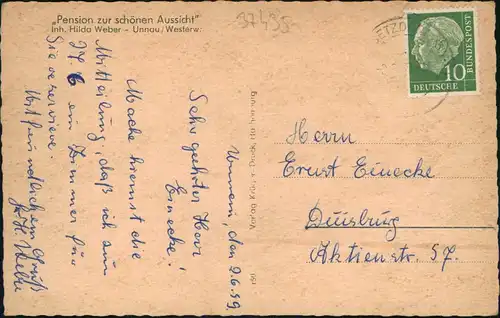 "Pension zur schönen Aussicht"
Inh. Hilda Weber - Unnau/Westerw.
37435
BETZDO
DEUTSCHE
BUNDESPOST
10
Unnau, den 2.6.59
Sehr geehrter Herr
Einecke!
Mache hiermit die
Mitteilung, daß ich zum
27. 6 ein Zimmer für
Sie reserviere.
Mit freundlichem Gruß
H. Weber
Herrn
Ernst Einecke
Duisburg
Aktienstr. 57.